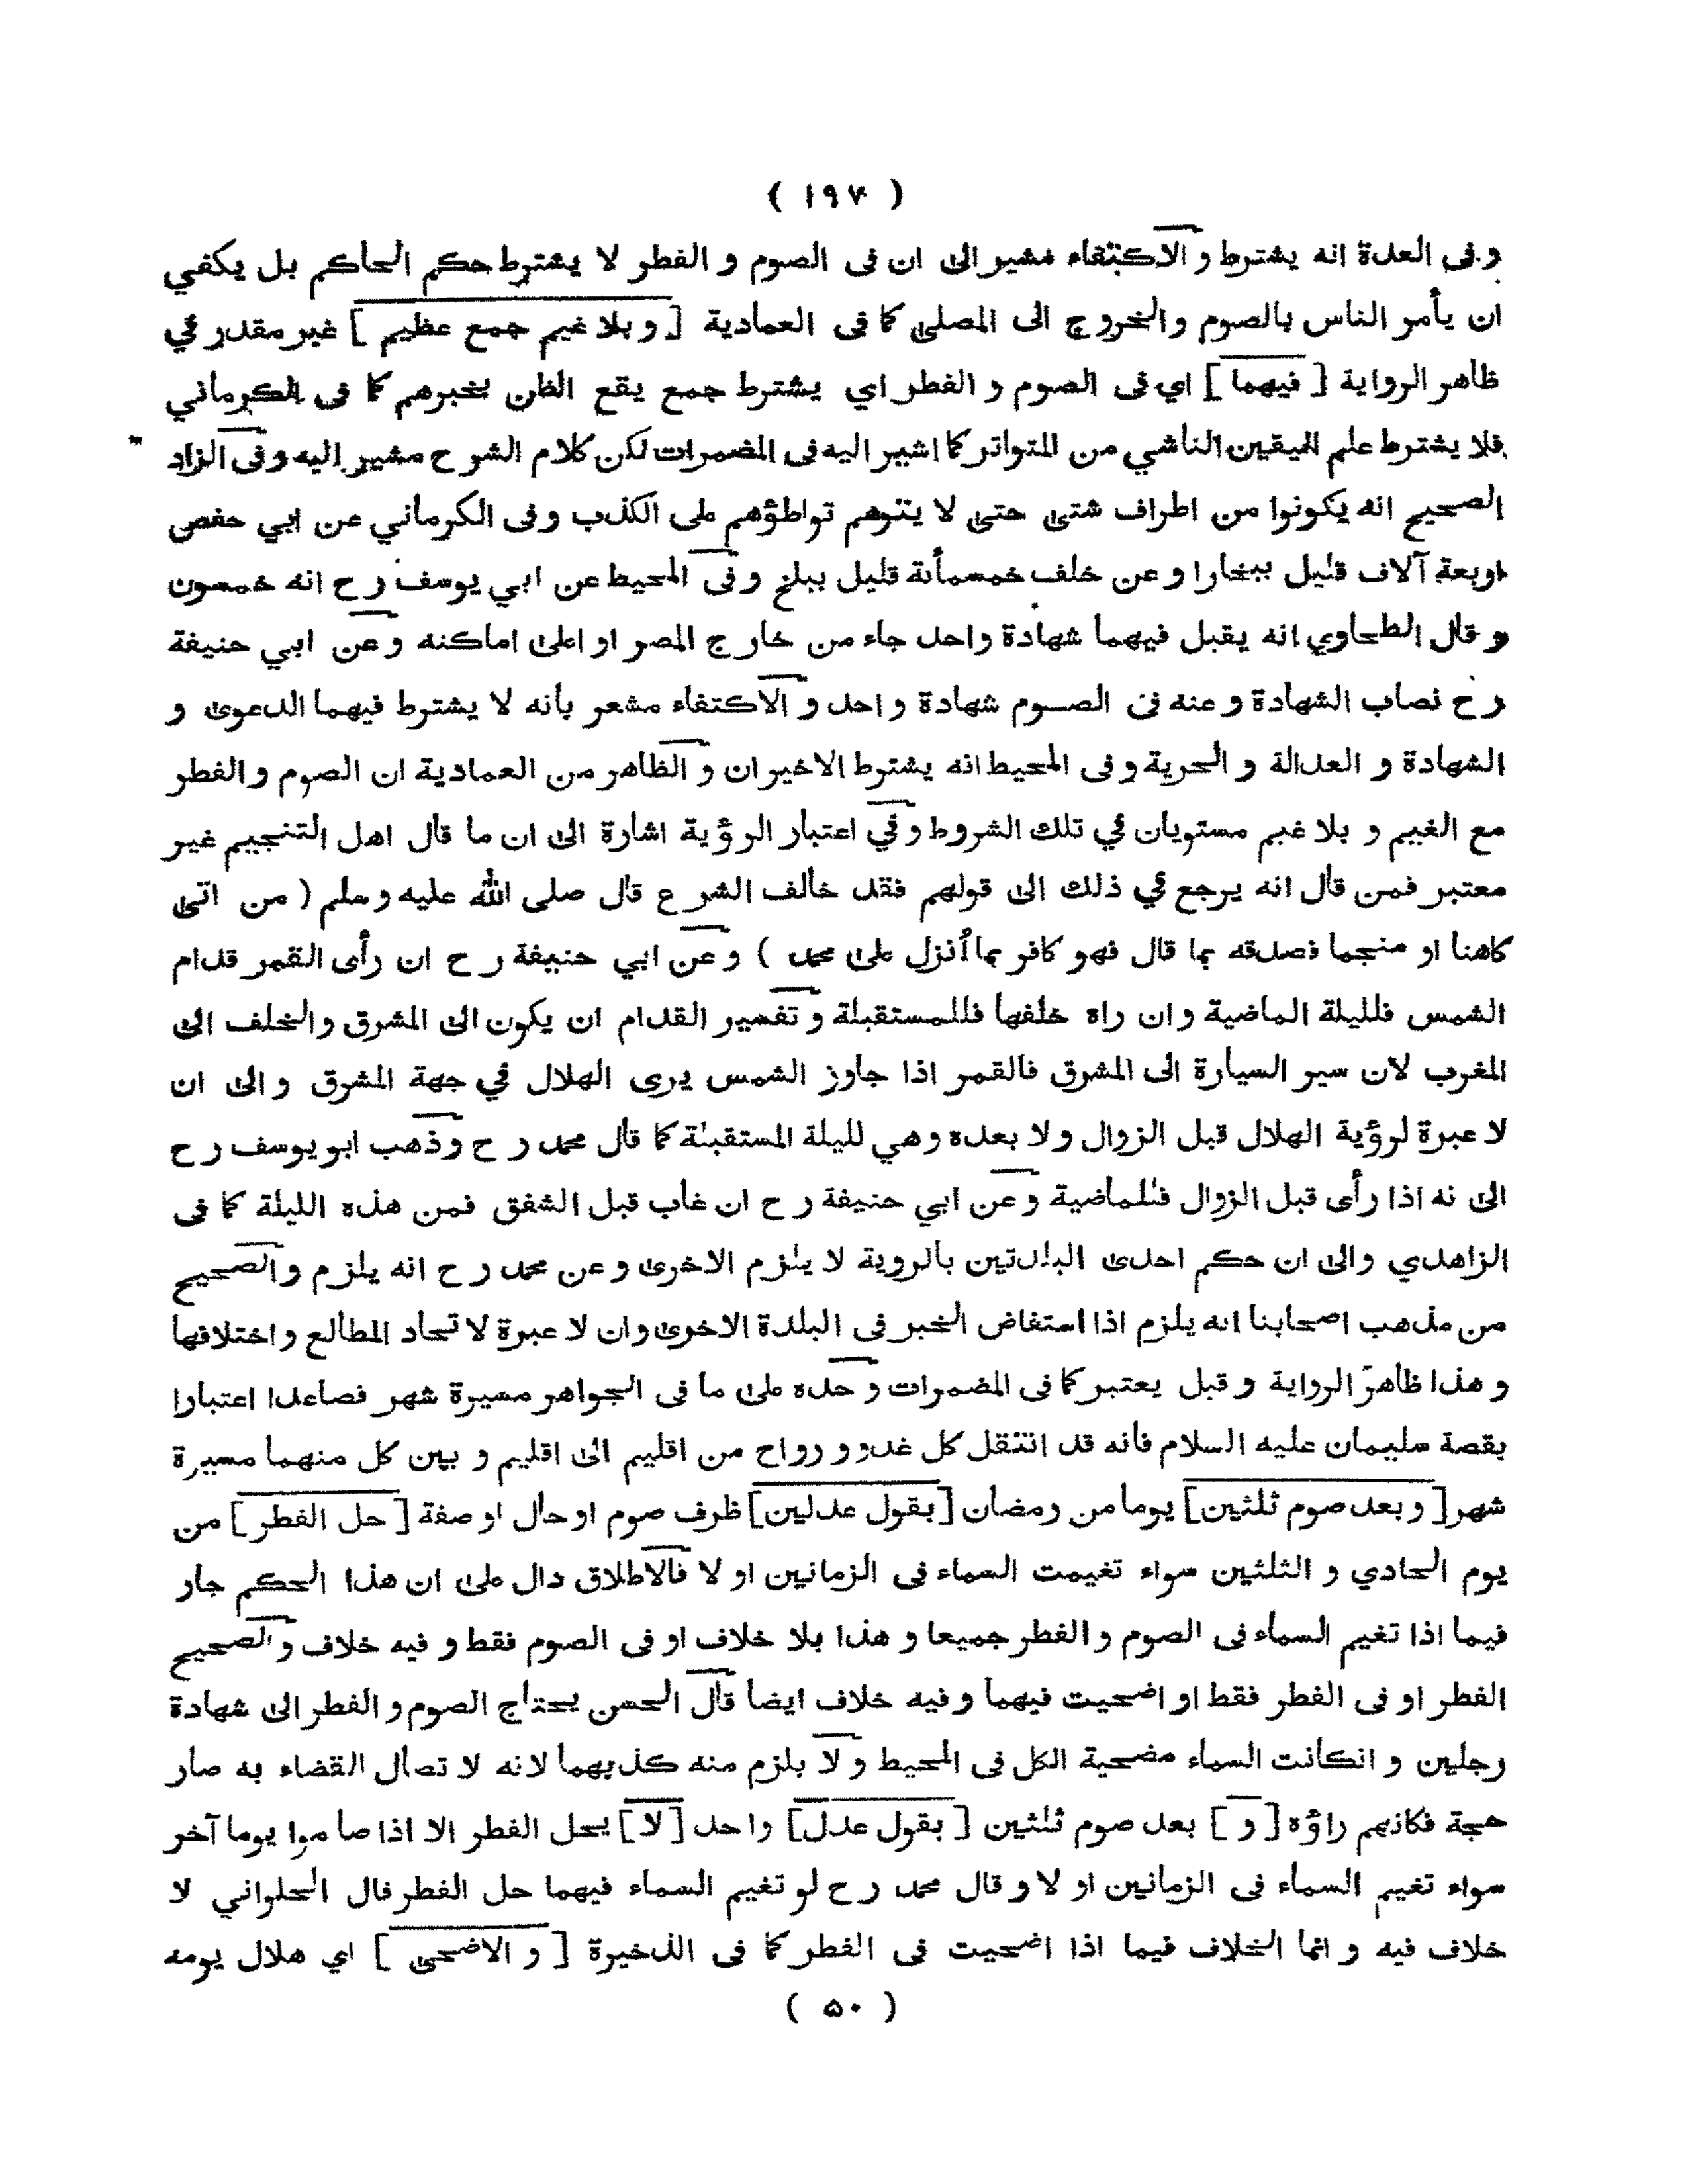 ( ١٩٧ )
وفى العدة انه يشترط و الاكتفاء مشير الى ان فى الصوم و الفطر لا يشترط حكم الحاكم بل يكفي
ان يأمر الناس بالصوم والخروج الى المصلى كما فى العمادية [ و بلا غيم جمع عظيم ] غير مقدر في
ظاهر الرواية [ فيهما ] اي فى الصوم و الفطر اي يشترط جمع يقع الظن بخبرهم كما فى الكرماني
فلا يشترط علم اليقين الناشي من المتواتر كما اشير اليه فى المضمرات لكن كلام الشرح مشير اليه وفى الزاد
الصحيح انه يكونوا من اطراف شتى حتى لا يتوهم تواطؤهم على الكذب وفى الكرماني عن ابي حفص
اربعة آلاف قليل ببخارا و عن خلف خمسمأئة قليل ببلخ وفى المحيط عن ابي يوسف رح انه خمسون
و قال الطحاوي انه يقبل فيهما شهادة واحد جاء من خارج المصر او اعلى اماكنه و عن ابي حنيفة
رح نصاب الشهادة و عنه فى الصوم شهادة واحد و الاكتفاء مشعر بأنه لا يشترط فيهما الدعوى و
الشهادة و العدالة و الحرية وفى المحيط انه يشترط الاخيران و الظاهر من العمادية ان الصوم والفطر
مع الغيم و بلا غيم مستويان في تلك الشروط وفي اعتبار الرؤية اشارة الى ان ما قال اهل التنجيم غير
معتبر فمن قال انه يرجع في ذلك الى قولهم فقد خالف الشرع قال صلى الله عليه وسلم ( من اتى
كاهنا او منجما فصدقه بما قال فهو كافر بما أنزل على محمد ) وعن ابي حنيفة رح ان رأى القمر قدام
الشمس فلليلة الماضية وان راه خلفها فللمستقبلة و تفسير القدام ان يكون الى المشرق والخلف الى
المغرب لان سير السيارة الى المشرق فالقمر اذا جاوز الشمس يرى الهلال في جهة المشرق والى ان
لا عبرة لرؤية الهلال قبل الزوال ولا بعده وهي لليلة المستقبلة كما قال محمد رح وذهب ابو يوسف رح
الى نه اذا رأى قبل الزوال فللماضية وعن ابي حنيفة رح ان غاب قبل الشفق فمن هذه الليلة كما فى
الزاهدي والى ان حكم احدى البلدتين بالروية لا يلزم الاخرى وعن محمد رح انه يلزم والصحيح
من مذهب اصحابنا انه يلزم اذا استفاض الخبر فى البلدة الاخرى وان لا عبرة لاتحاد المطالع واختلافها
و هذا ظاهر الرواية و قبل يعتبر كما فى المضمرات و حده على ما فى الجواهر مسيرة شهر فصاعدا اعتبارا
بقصة سليمان عليه السلام فأنه قد انتقل كل غدو و رواح من اقليم الى اقليم و بين كل منهما مسيرة
شهر [ و بعد صوم ثلثين ] يوما من رمضان [ بقول عدلين ] ظرف صوم او حال او صفة [ حل الفطر ] من
يوم الحادي و الثلثين سواء تغيمت السماء فى الزمانين او لا فالاطلاق دال على ان هذا الحكم جار
فيما اذا تغيم السماء فى الصوم و الفطر جميعا و هذا بلا خلاف او فى الصوم فقط و فيه خلاف و الصحيح
الفطر او فى الفطر فقط او اضحيت فيهما وفيه خلاف ايضا قال الحسن يحتاج الصوم و الفطر الى شهادة
رجلين و انكانت السماء مضحية الكل فى المحيط و لا يلزم منه كذبهما لانه لا تصال القضاء به صار
حجة فكانهم راؤه [ و ] بعد صوم ثلثين [ بقول عدل ] واحد [ لا ] يحل الفطر الا اذا صاموا يوما آخر
سواء تغيم السماء فى الزمانين او لا و قال محمد رح لو تغيم السماء فيهما حل الفطر قال الحلواني لا
خلاف فيه و انما الخلاف فيما اذا اضحيت فى الفطر كما فى الذخيرة [ و الاضحى ] اي هلال يومه
( ٥٠ )